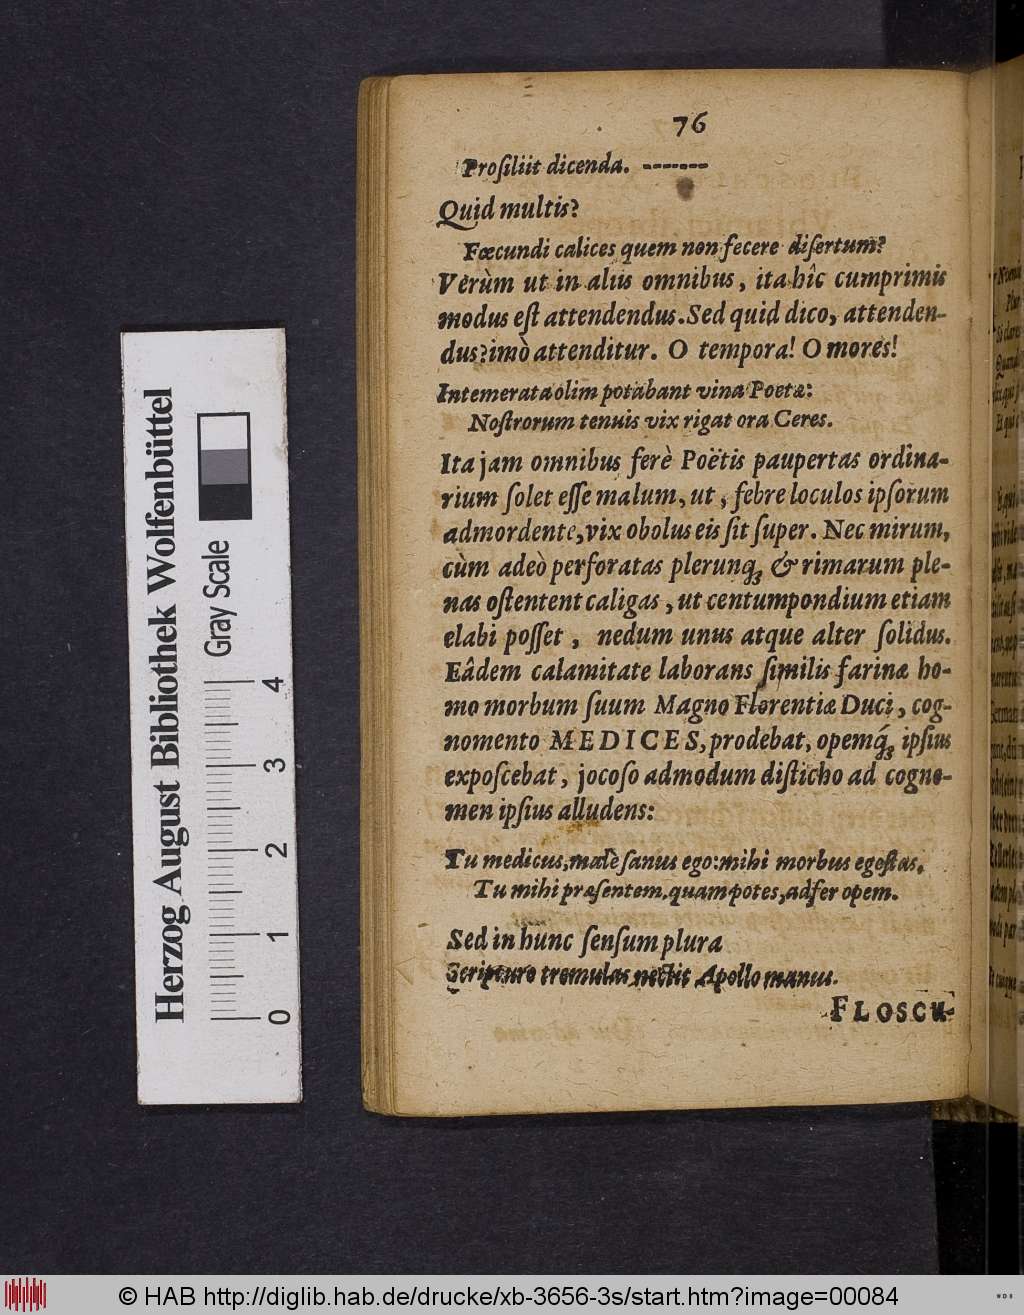 76
Proſiliit dicenda. -------
Quid multis?
Fœcundi calices quem non fecere diſertum?
Verùm ut in aliis omnibus, ita hîc cumprimis
modus eſt attendendus. Sed quid dico, attenden-
dus? imò attenditur. O tempora! O mores!
Intemerata olim potabant vina Poetæ:
Noſtrorum tenuis vix rigat ora Ceres.
Ita jam omnibus ferè Poëtis paupertas ordina-
rium ſolet eſſe malum, ut, febre loculos ipſorum
admordente, vix obolus eis ſit ſuper. Nec mirum,
cùm adeò perforatas plerunq́ꝫ & rimarum ple-
nas oſtentent caligas, ut centumpondium etiam
elabi poſſet, nedum unus atque alter ſolidus.
Eâdem calamitate laborans ſimilis farinæ ho-
mo morbum ſuum Magno Florentiæ Duci, cog-
nomento MEDICES, prodebat, opemq́ꝫ ipſius
expoſcebat, jocoſo admodum diſticho ad cogno-
men ipſius alludens:
Tu medicus, malè ſanus ego: mihi morbus egeſtas,
Tu mihi præſentem, quam potes, adfer opem.
Sed in hunc ſenſum plura
Scripturo tremulas nectit Apollo manus.
FLOSCU-
Herzog August Bibliothek Wolfenbüttel
Gray Scale
0 1 2 3 4
© HAB http://diglib.hab.de/drucke/xb-3656-3s/start.htm?image=00084